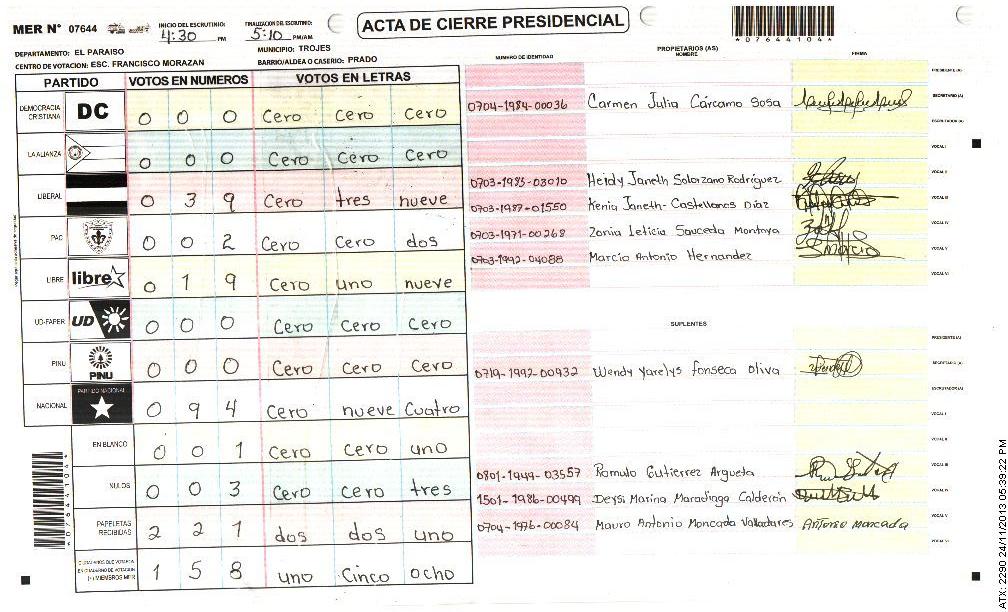 MER N° 07644 INICIO DEL ESCRUTINIO: 4:30 PM FINALIZACION DEL ESCRUTINIO: 5:10 PM/AM
ACTA DE CIERRE PRESIDENCIAL
*07644104*
DEPARTAMENTO: EL PARAISO MUNICIPIO: TROJES
CENTRO DE VOTACION: ESC. FRANCISCO MORAZAN BARRIO/ALDEA O CASERIO: PRADO
PARTIDO VOTOS EN NUMEROS VOTOS EN LETRAS
DEMOCRACIA CRISTIANA DC 0 0 0 Cero Cero Cero
LA ALIANZA 0 0 0 Cero Cero Cero
LIBERAL 0 3 9 Cero tres nueve
PAC 0 0 2 Cero Cero dos
LIBRE libre 0 1 9 Cero uno nueve
UD-FAPER UD 0 0 0 Cero Cero Cero
PINU PINU 0 0 0 Cero Cero Cero
NACIONAL PARTIDO NACIONAL 0 9 4 Cero nueve Cuatro
EN BLANCO 0 0 1 Cero Cero uno
NULOS 0 0 3 Cero Cero tres
PAPELETAS RECIBIDAS 2 2 1 dos dos uno
CIUDADANOS QUE VOTARON EN CUADERNO DE VOTACION (+) MIEMBROS MER 1 5 8 uno Cinco ocho
*07644104*
PROPIETARIOS (AS)
NUMERO DE IDENTIDAD NOMBRE FIRMA
PRESIDENTE (A)
0704-1984-00036 Carmen Julia Cárcamo Sosa SECRETARIO (A)
ESCRUTADOR (A)
VOCAL I
0703-1985-03010 Heidy Janeth Solorzano Rodríguez VOCAL II
0703-1987-01550 Kenia Janeth Castellanos Díaz VOCAL III
0703-1971-00268 Zonia Leticia Sauceda Montoya VOCAL IV
0703-1992-04088 Marcio Antonio Hernandez VOCAL V
VOCAL VI
SUPLENTES
PRESIDENTE (A)
0719-1992-00932 Wendy Yarelys Fonseca Oliva SECRETARIO (A)
ESCRUTADOR (A)
VOCAL I
VOCAL II
0801-1949-03557 Romulo Gutierrez Argueta VOCAL III
1501-1986-00499 Deysi Marina Maradiaga Calderón VOCAL IV
0704-1976-00084 Mauro Antonio Moncada Valladares Antonio moncada VOCAL V
VOCAL VI
ATX: 2290 24/11/2013 05:39:22 PM